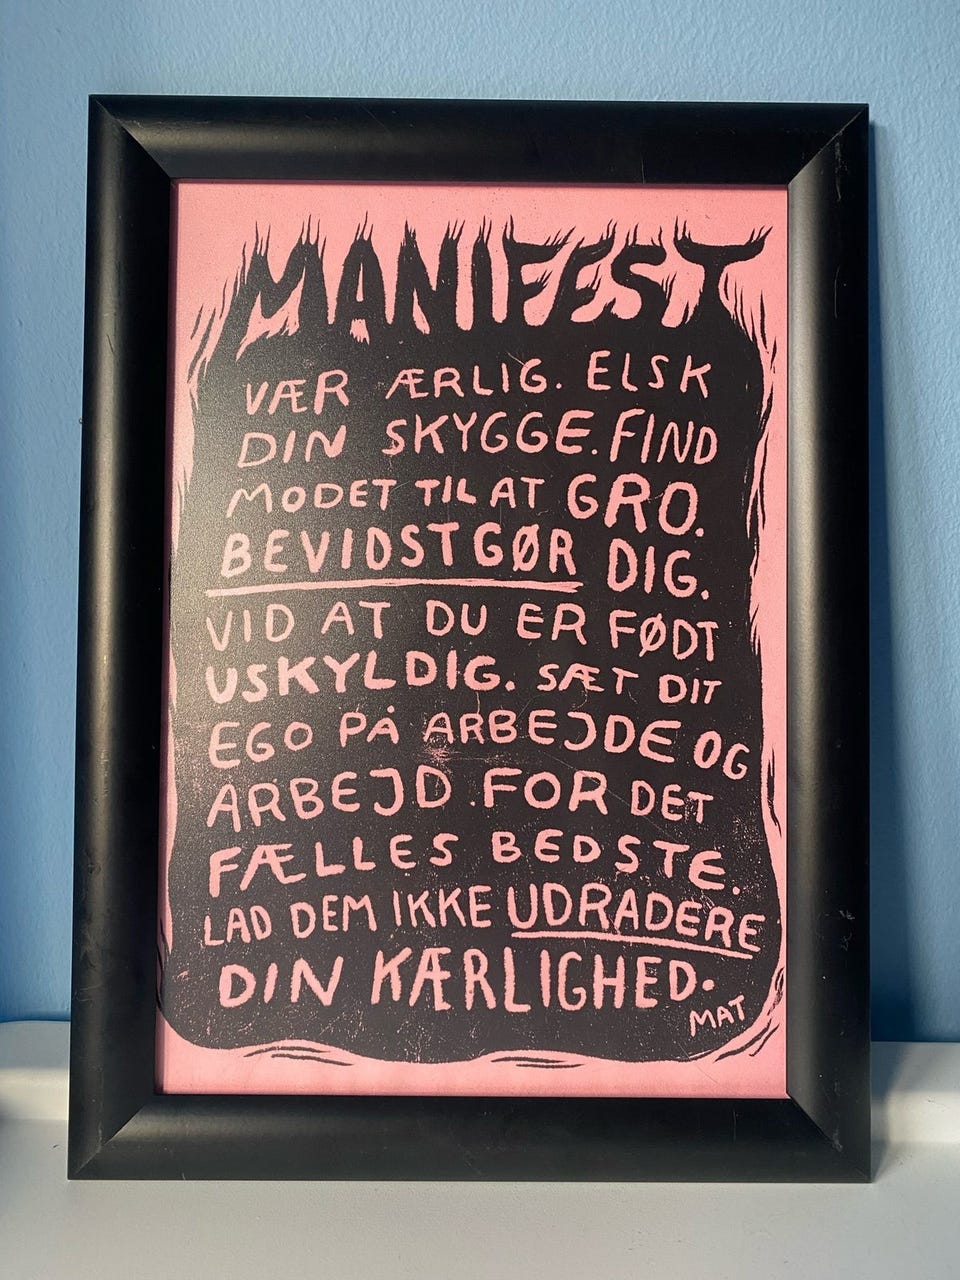 MANIFEST
VÆR ÆRLIG. ELSK
DIN SKYGGE. FIND
MODET TIL AT GRO.
BEVIDSTGØR DIG.
VID AT DU ER FØDT
USKYLDIG. SÆT DIT
EGO PÅ ARBEJDE OG
ARBEJD. FOR DET
FÆLLES BEDSTE.
LAD DEM IKKE UDRADERE
DIN KÆRLIGHED.
MAT